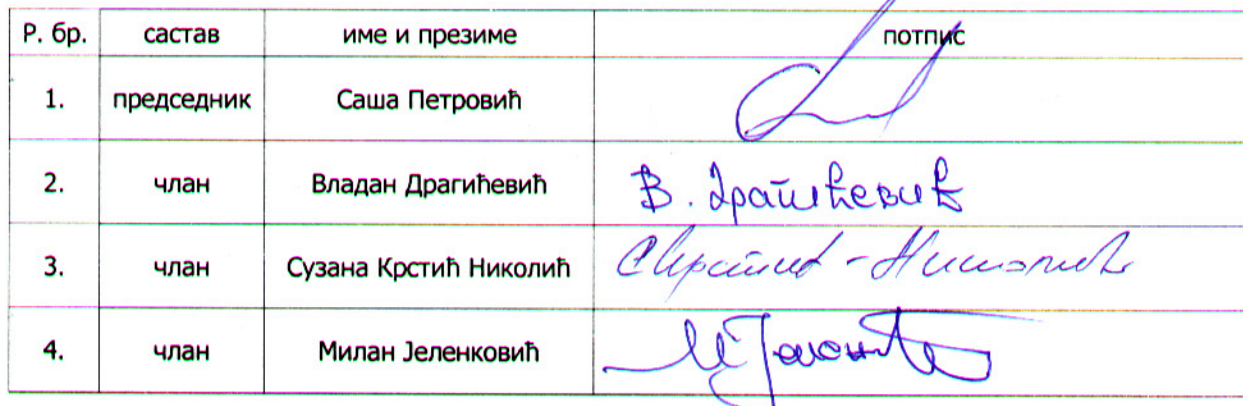 Р. бр. састав име и презиме потпис
1. председник Саша Петровић
2. члан Владан Драгићевић В. Драгићевић
3. члан Сузана Крстић Николић СКрстић - Николић
4. члан Милан Јеленковић